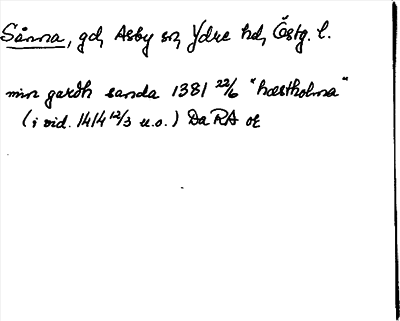 Sånna, gd, Asby sn, Ydre hd, Östg. l.
min gardh sanda 1381 22/6 "hæstholma"
(i vid. 1414 12/3 u.o.) Da RA or